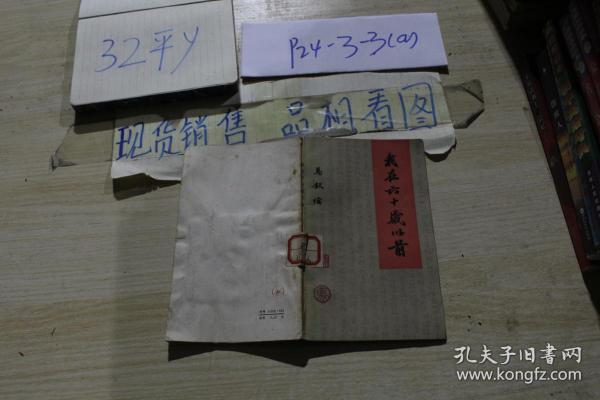 32平y
P24-3-3(a)
现货销售 品相看图
我在六十歲以前
馬叙倫
孔夫子旧书网
www.kongfz.com